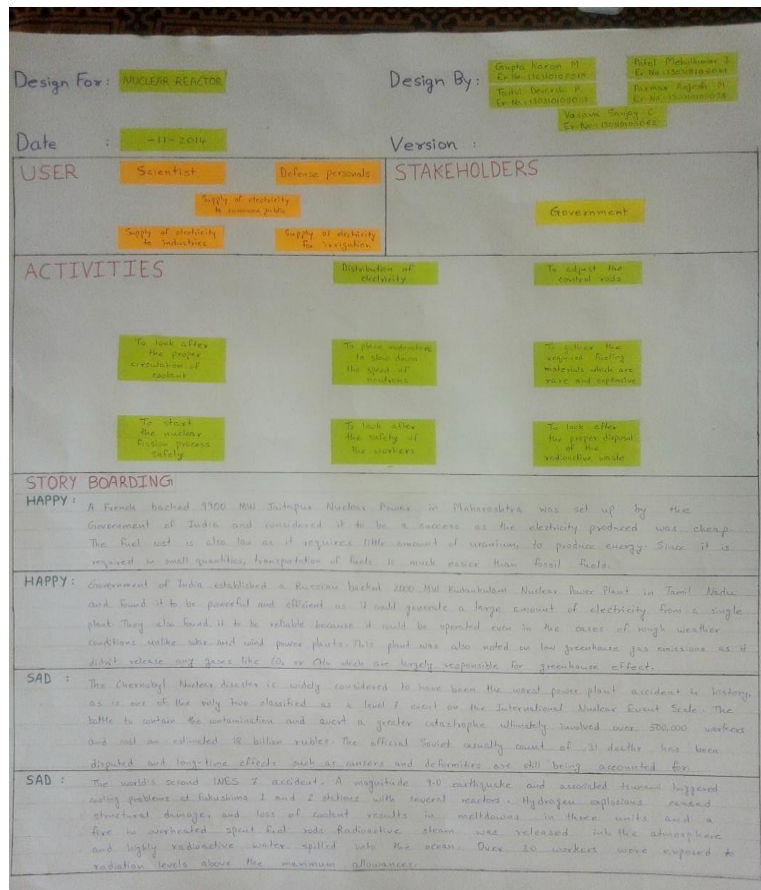 Design For: NUCLEAR REACTOR
Design By:
Gupta Karan M
Patel Mehulkumar J
Tadvi Devendi P.
Parmar Rajesh M.
Vasava Sanjay C
Date : -11-2014
Version :
USER
Scientist
Defense personals
Supply of electricity
to common public
Supply of electricity
to industries
Supply of electricity
for irrigation
STAKEHOLDERS
Government
ACTIVITIES
Distribution of
electricity
To adjust the
control rods
To look after
the proper
circulation of
coolant
To place moderators
to slow down
the speed of
neutrons
To gather the
required fueling
materials which are
rare and expensive
To start
the nuclear
fission process
safely
To look after
the safety of
the workers
To look after
the proper disposal
of the
radioactive waste
STORY BOARDING
HAPPY: A French backed 9900 MW Jaitapur Nuclear Power in Maharashtra was set up by the
Government of India and considered it to be a success as the electricity produced was cheap
The fuel cost is also low as it requires little amount of uranium, to produce energy. Since it is
required in small quantities, transportation of fuels is much easier than fossil fuels.
HAPPY: Government of India established a Russian backed 2000 MW Kudankulam Nuclear Power Plant in Tamil Nadu
and found it to be powerful and efficient as it could generate a large amount of electricity from a single
plant. They also found it to be reliable because it could be operated even in the cases of rough weather
conditions unlike solar and wind power plants. This plant was also noted on low greenhouse gas emissions as it
didn't release any gases like CO₂ or CH₄ which are largely responsible for greenhouse effect.
SAD : The Chernobyl Nuclear disaster is widely considered to have been the worst power plant accident in history,
as is one of the only two classified as a level 7 event on the International Nuclear Event Scale. The
battle to contain the contamination and avert a greater catastrophe ultimately involved over 500,000 workers
and cost an estimated 18 billion rubles. The official Soviet casualty count of 31 deaths has been
disputed and long-time effects such as cancers and deformities are still being accounted for.
SAD : The world's second INES 7 accident. A magnitude 9.0 earthquake and associated tsunami triggered
cooling problems at Fukushima 1 and 2 stations with several reactors. Hydrogen explosions caused
structural damage, and loss of coolant results in meltdowns in three units and a
fire in overheated spent fuel rods. Radioactive steam was released into the atmosphere
and highly radioactive water spilled into the ocean. Over 20 workers were exposed to
radiation levels above the maximum allowances.